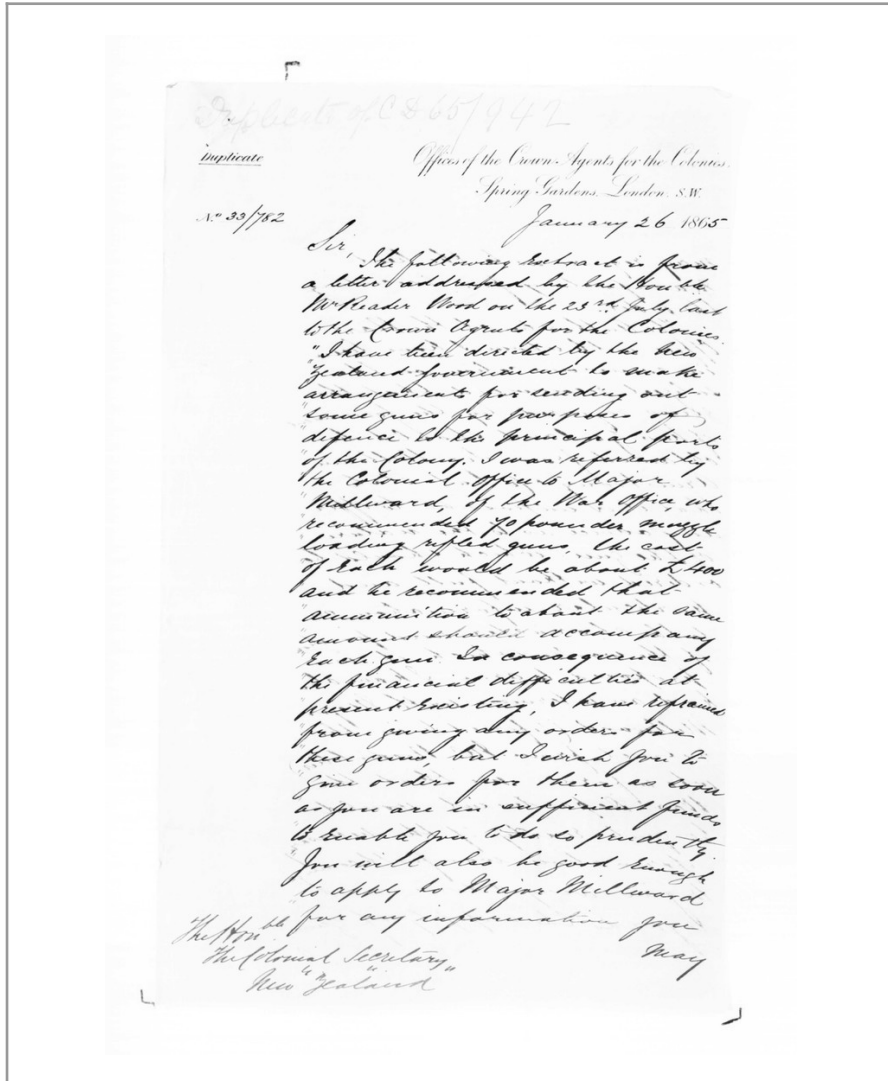 Duplicate of CD 65/942
Duplicate
Offices of the Crown Agents for the Colonies,
Spring Gardens, London, S.W.
No. 33/782
January 26 1865
Sir,
The following Extract is from
a letter addressed by the Honble
Mr Reader Wood on the 23rd July last
to the Crown Agents for the Colonies
"I have been directed by the New
"Zealand Government to make
"arrangements for sending out
"some guns for purposes of
"defence to the principal ports
"of the Colony. I was referred by
"the Colonial Office to Major
"Millward, of the War Office, who
"recommended 70 pounder muzzle
"loading rifled guns, the cost
"of each would be about £400
"and he recommended that
"ammunition to about the same
"amount should accompany
"Each gun. In consequence of
"the financial difficulties at
"present Existing, I have refrained
"from giving any orders for
"these guns, but I wish you to
"give orders for them as soon
"as you are in sufficient funds
"to Enable you to do so prudently.
"You will also be good Enough
"to apply to Major Millward
"for any information you
may
The Honble
The Colonial Secretary
New Zealand